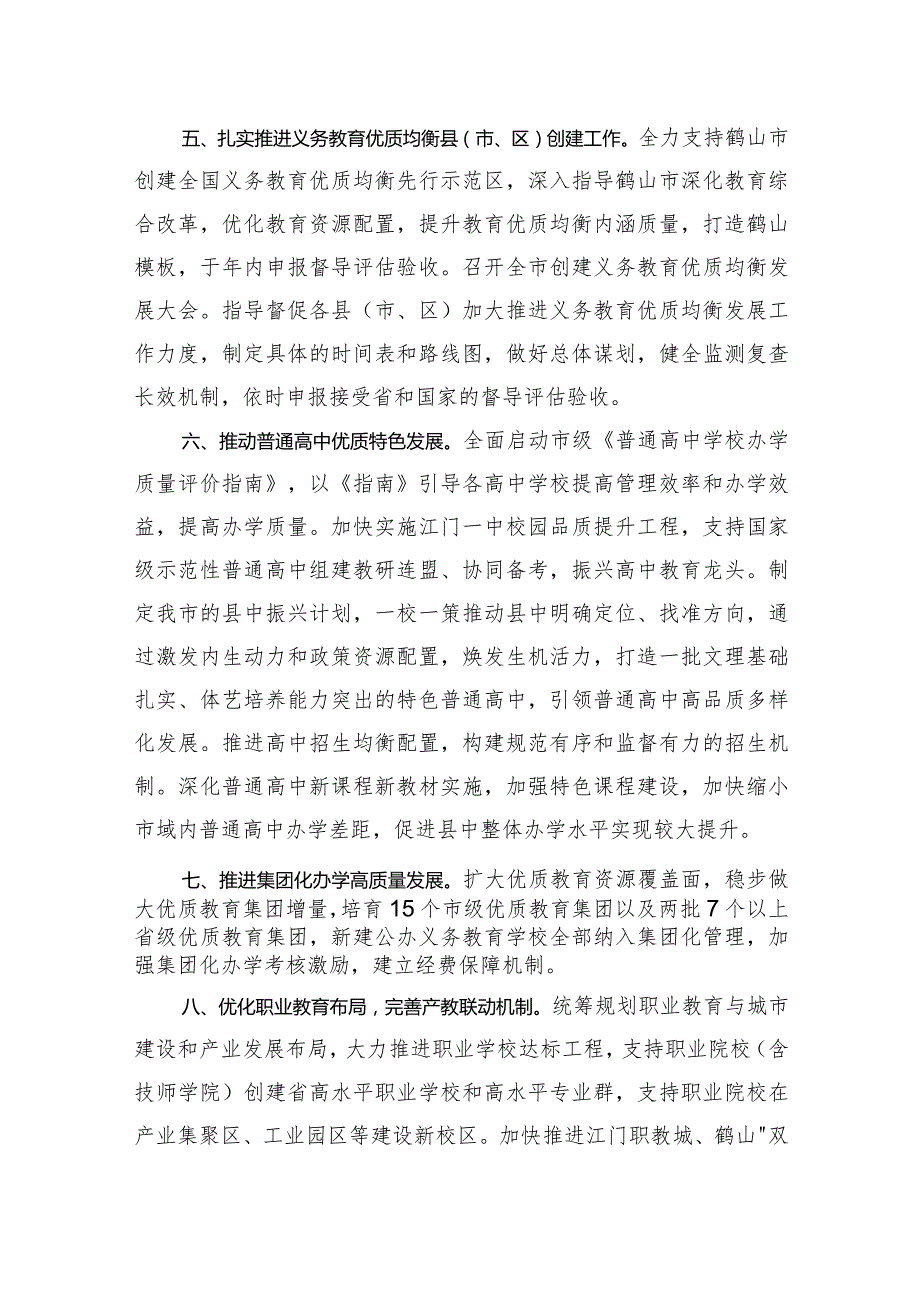 五、扎实推进义务教育优质均衡县（市、区）创建工作。全力支持鹤山市
创建全国义务教育优质均衡先行示范区，深入指导鹤山市深化教育综
合改革，优化教育资源配置，提升教育优质均衡内涵质量，打造鹤山
模板，于年内申报督导评估验收。召开全市创建义务教育优质均衡发
展大会。指导督促各县（市、区）加大推进义务教育优质均衡发展工
作力度，制定具体的时间表和路线图，做好总体谋划，健全监测复查
长效机制，依时申报接受省和国家的督导评估验收。
六、推动普通高中优质特色发展。全面启动市级《普通高中学校办学
质量评价指南》，以《指南》引导各高中学校提高管理效率和办学效
益，提高办学质量。加快实施江门一中校园品质提升工程，支持国家
级示范性普通高中组建教研连盟、协同备考，振兴高中教育龙头。制
定我市的县中振兴计划，一校一策推动县中明确定位、找准方向，通
过激发内生动力和政策资源配置，焕发生机活力，打造一批文理基础
扎实、体艺培养能力突出的特色普通高中，引领普通高中高品质多样
化发展。推进高中招生均衡配置，构建规范有序和监督有力的招生机
制。深化普通高中新课程新教材实施，加强特色课程建设，加快缩小
市域内普通高中办学差距，促进县中整体办学水平实现较大提升。
七、推进集团化办学高质量发展。扩大优质教育资源覆盖面，稳步做
大优质教育集团增量，培育15个市级优质教育集团以及两批7个以上
省级优质教育集团，新建公办义务教育学校全部纳入集团化管理，加
强集团化办学考核激励，建立经费保障机制。
八、优化职业教育布局，完善产教联动机制。统筹规划职业教育与城市
建设和产业发展布局，大力推进职业学校达标工程，支持职业院校（含
技师学院）创建省高水平职业学校和高水平专业群，支持职业院校在
产业集聚区、工业园区等建设新校区。加快推进江门职教城、鹤山"双